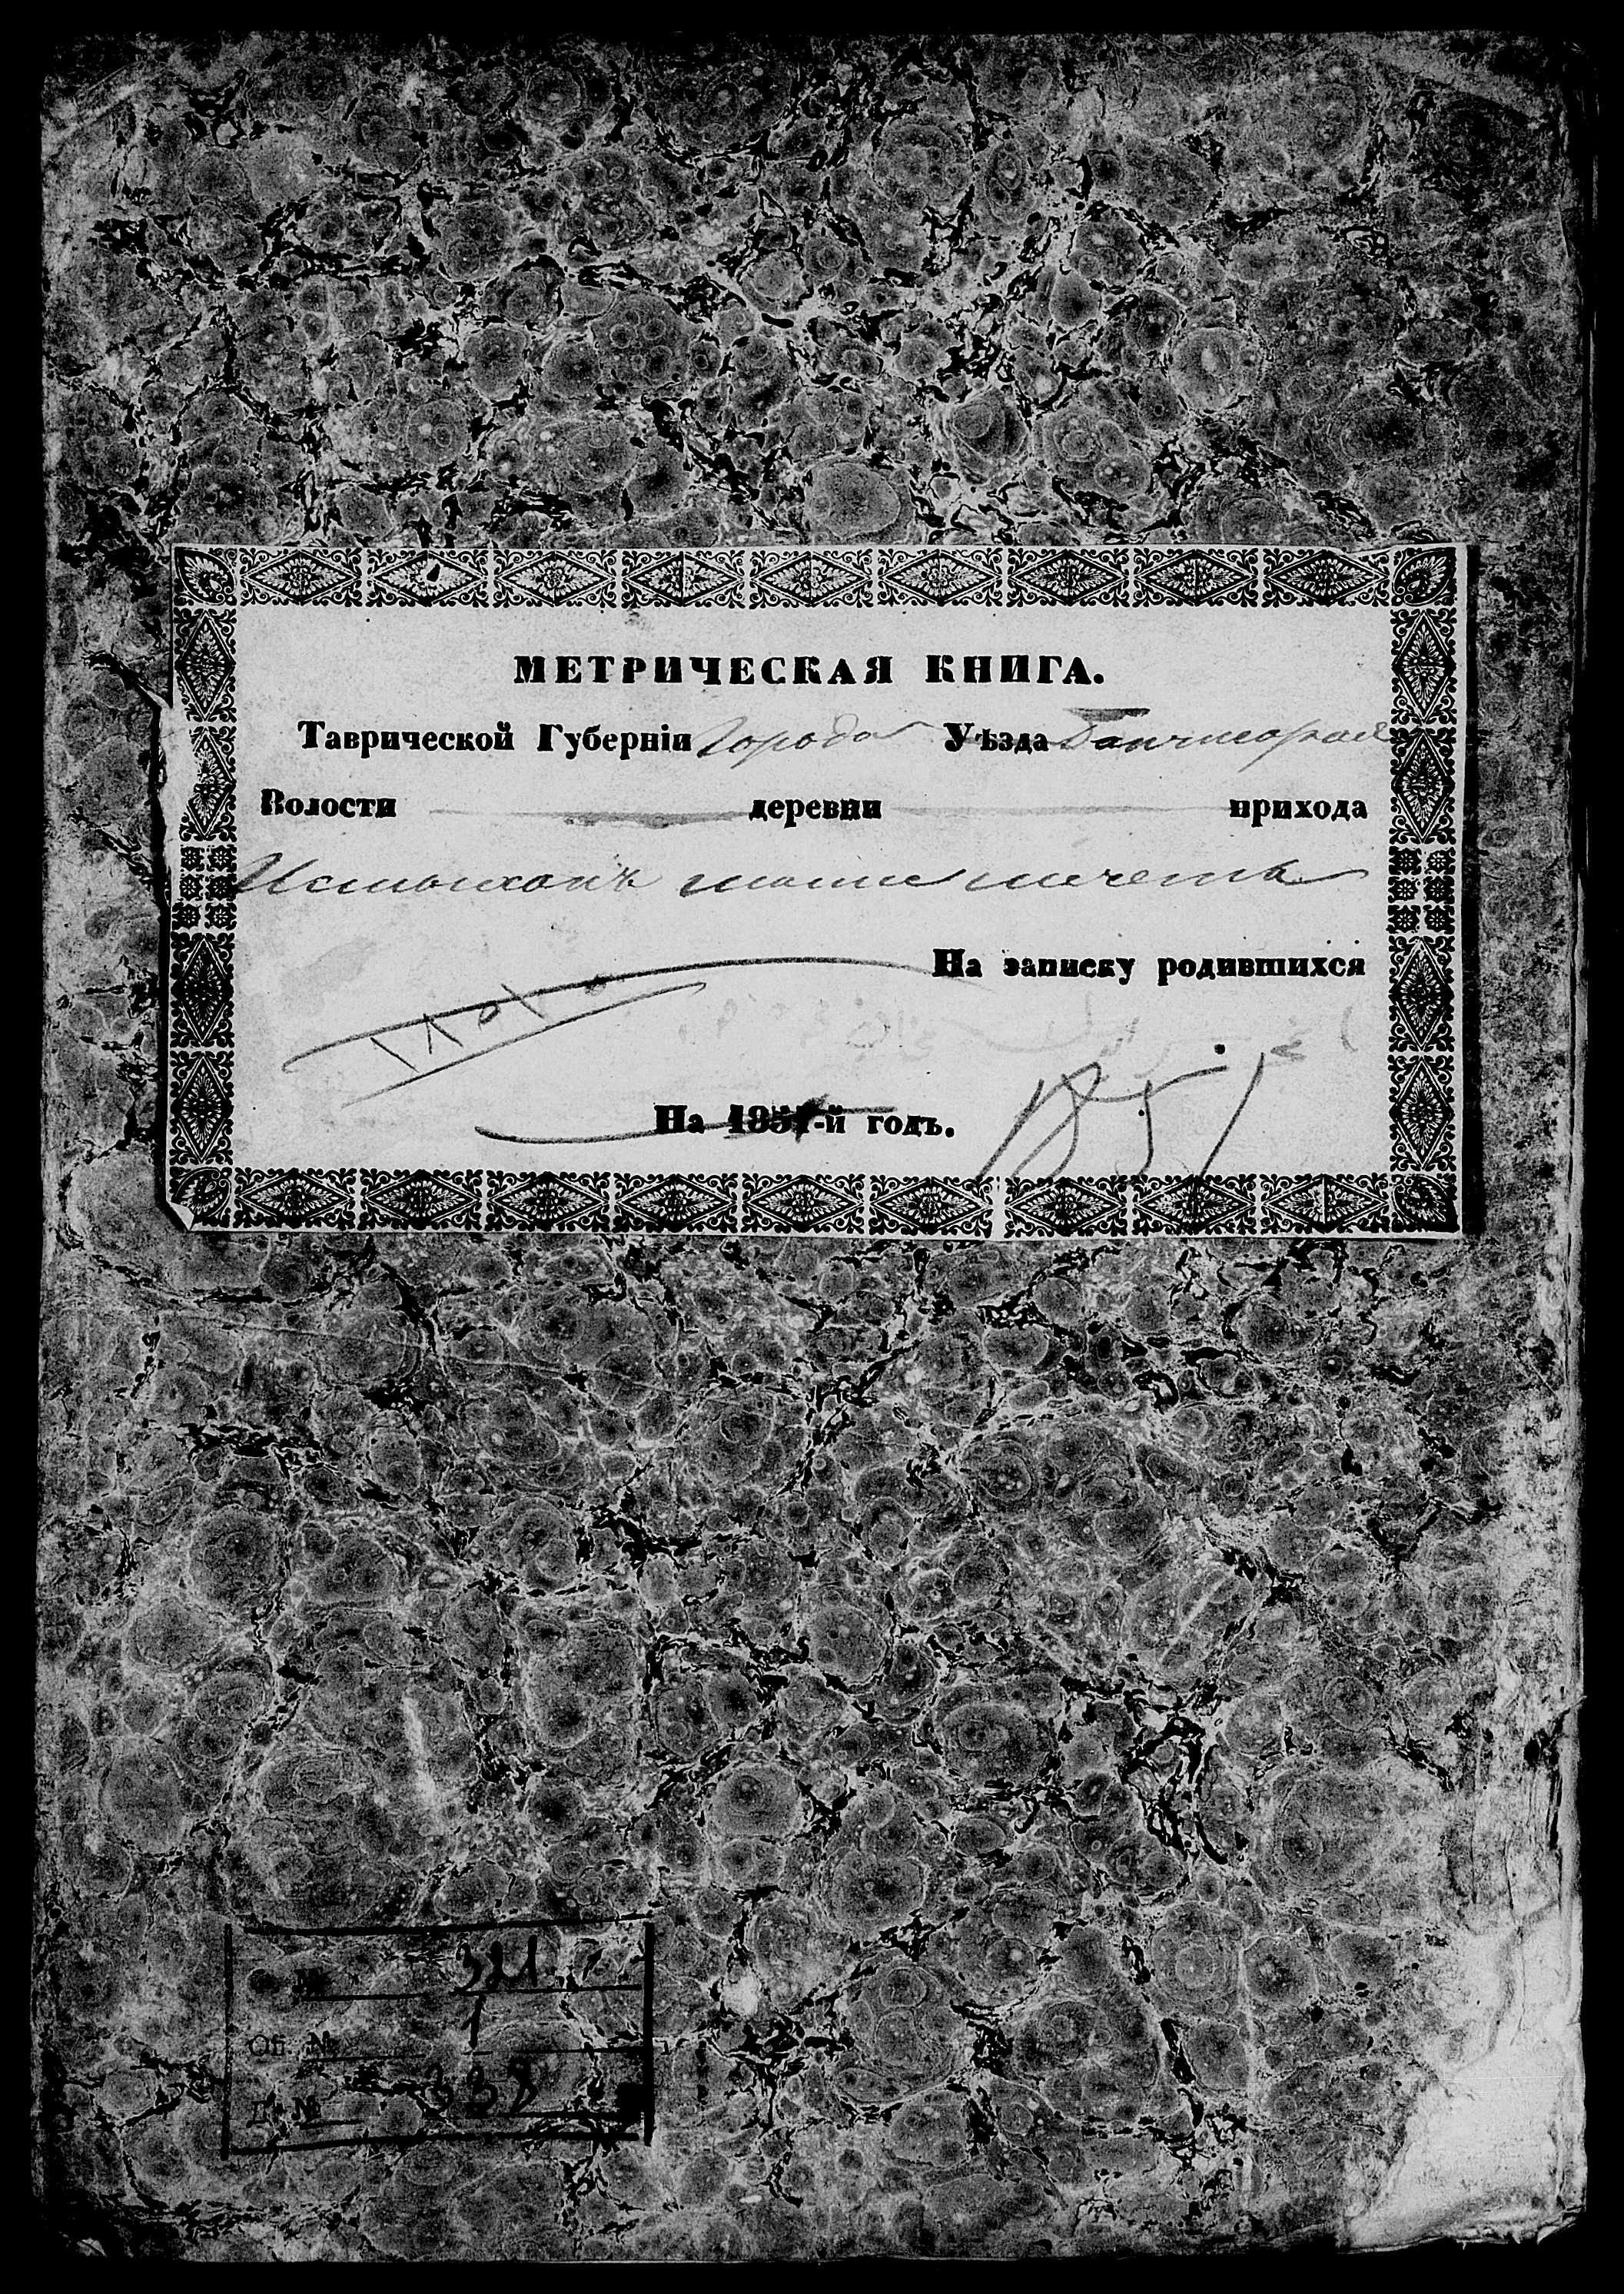 МЕТРИЧЕСКАЯ КНИГА.
Таврической Губерніи Города Уѣзда Бахчисарая
Волости деревни прихода
мечета
На записку родившихся
١٨٥١
На 1851-й годъ.
1851
№ 321
Оп. № 1
Д. № 338